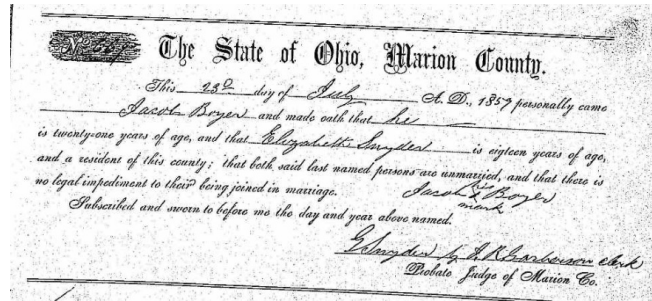 The State of Ohio, Marion County.
This 23d day of July A. D., 1857 personally came
Jacob Boyer and made oath that he
is twenty-one years of age, and that Elizabeth Snyder is eigteen years of age,
and a resident of this county; that both said last named persons are unmarried, and that there is
no legal impediment to their being joined in marriage. Jacob his x mark Boyer
Subscribed and sworn to before me the day and year above named.
G Snyder by Clerk
Probate Judge of Marion Co.